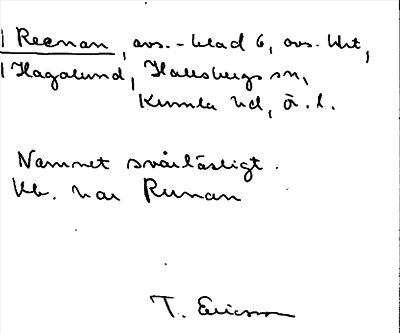 Reenan, avs.-blad 6, avs. Wt,
Hagalund, Hallsbergs sn,
Kumla hd, Ö. l.
Namnet svårläsligt.
Kb. har Runan
T. Ericsson